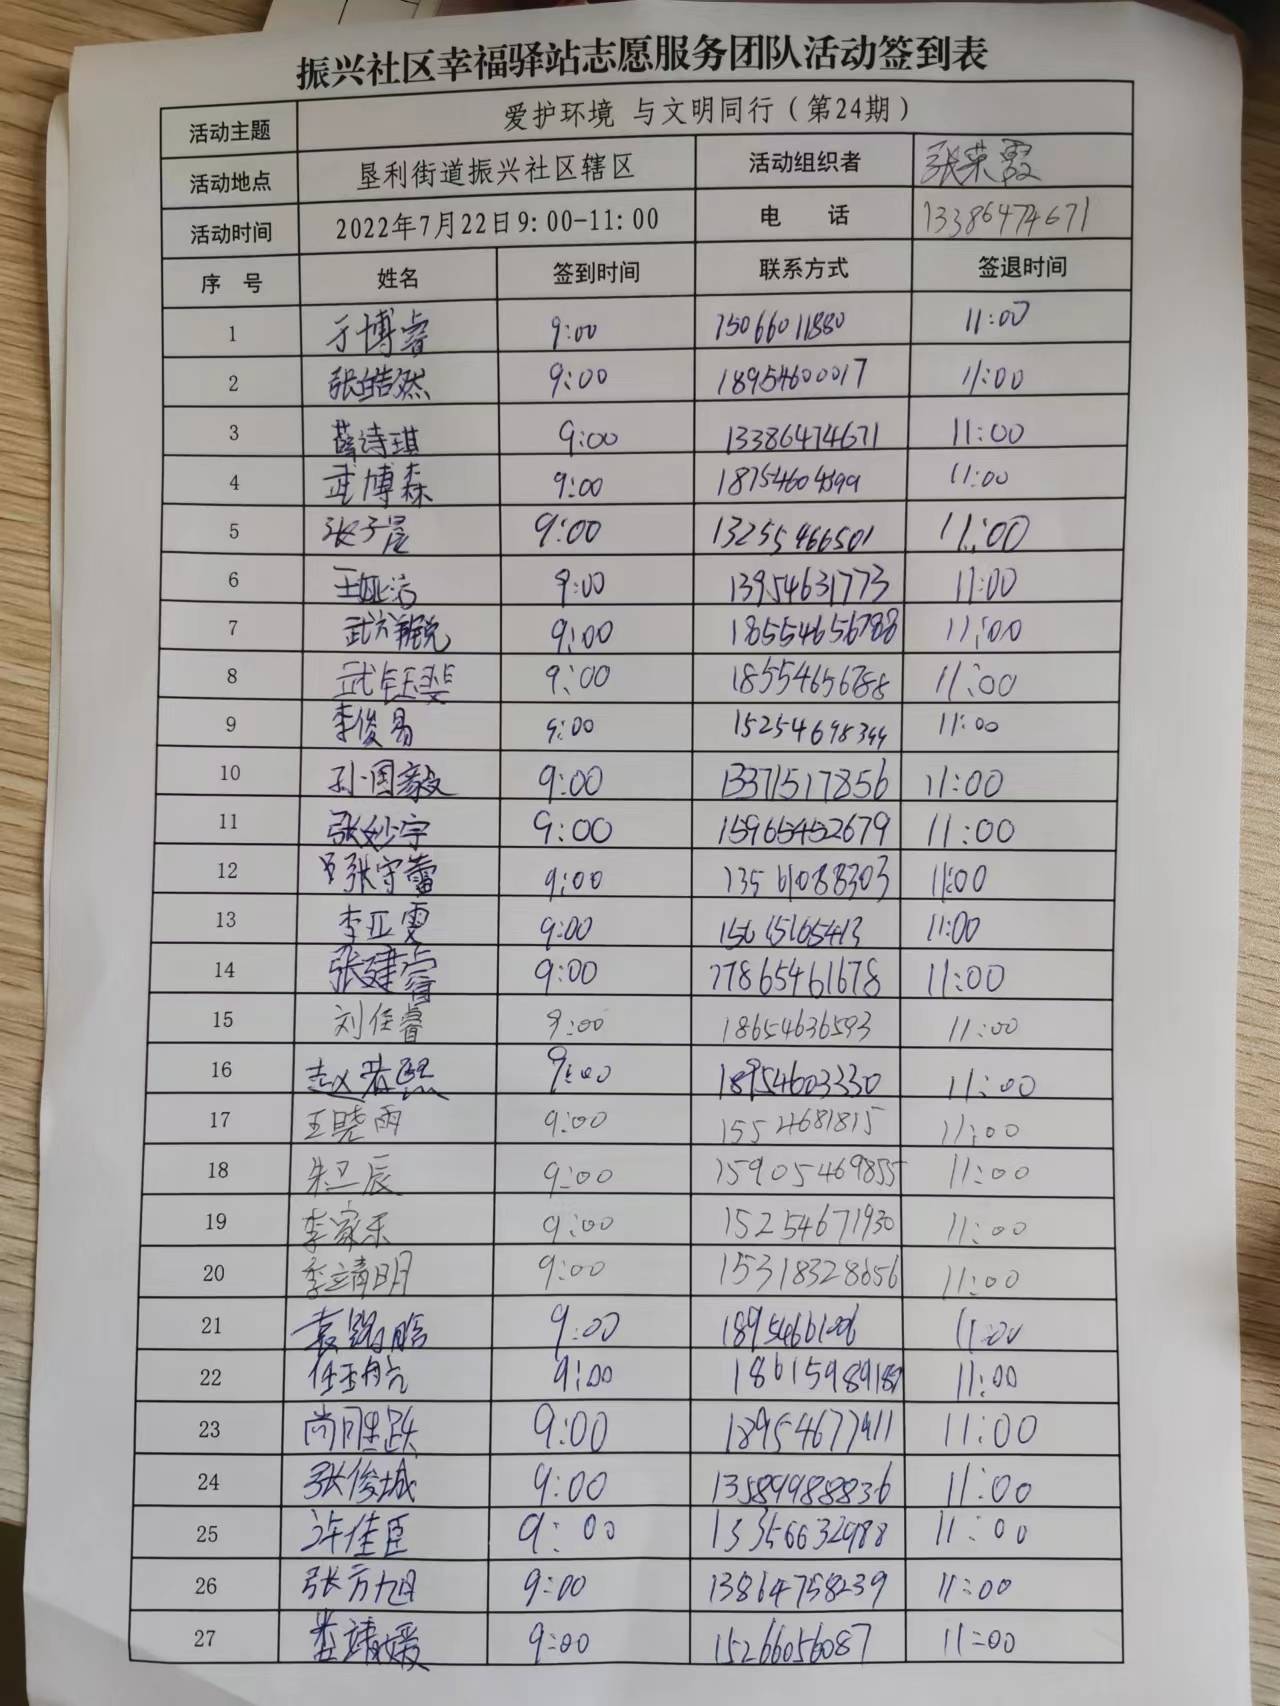 振兴社区幸福驿站志愿服务团队活动签到表
活动主题 爱护环境 与文明同行（第24期）
活动地点 垦利街道振兴社区辖区 活动组织者 张荣霞
活动时间 2022年7月22日9:00-11:00 电 话 13386474671
序 号 姓名 签到时间 联系方式 签退时间
1 于博睿 9:00 15066011880 11:00
2 张皓然 9:00 18954600017 11:00
3 薛诗琪 9:00 13386474671 11:00
4 武博森 9:00 18754604599 11:00
5 张子晨 9:00 13255466501 11:00
6 9:00 13954631773 11:00
7 9:00 18554656788 11:00
8 武钰斐 9:00 18554656788 11:00
9 李俊易 9:00 15254698344 11:00
10 孙国毅 9:00 13371517856 11:00
11 张妙宇 9:00 15965452679 11:00
12 张守蕾 9:00 13561088303 11:00
13 李亚雯 9:00 11:00
14 张建睿 9:00 17865461678 11:00
15 刘佳睿 9:00 18654636593 11:00
16 赵若熙 9:00 18954603330 11:00
17 王晓雨 9:00 11:00
18 朱卫辰 9:00 15905469855 11:00
19 李家乐 9:00 15254671930 11:00
20 李靖明 9:00 15318328656 11:00
21 9:00 11:00
22 9:00 18615989182 11:00
23 9:00 18954677911 11:00
24 张俊城 9:00 13589988836 11:00
25 许佳臣 9:00 13356632988 11:00
26 张方旭 9:00 13864758239 11:00
27 9:00 15266056087 11:00